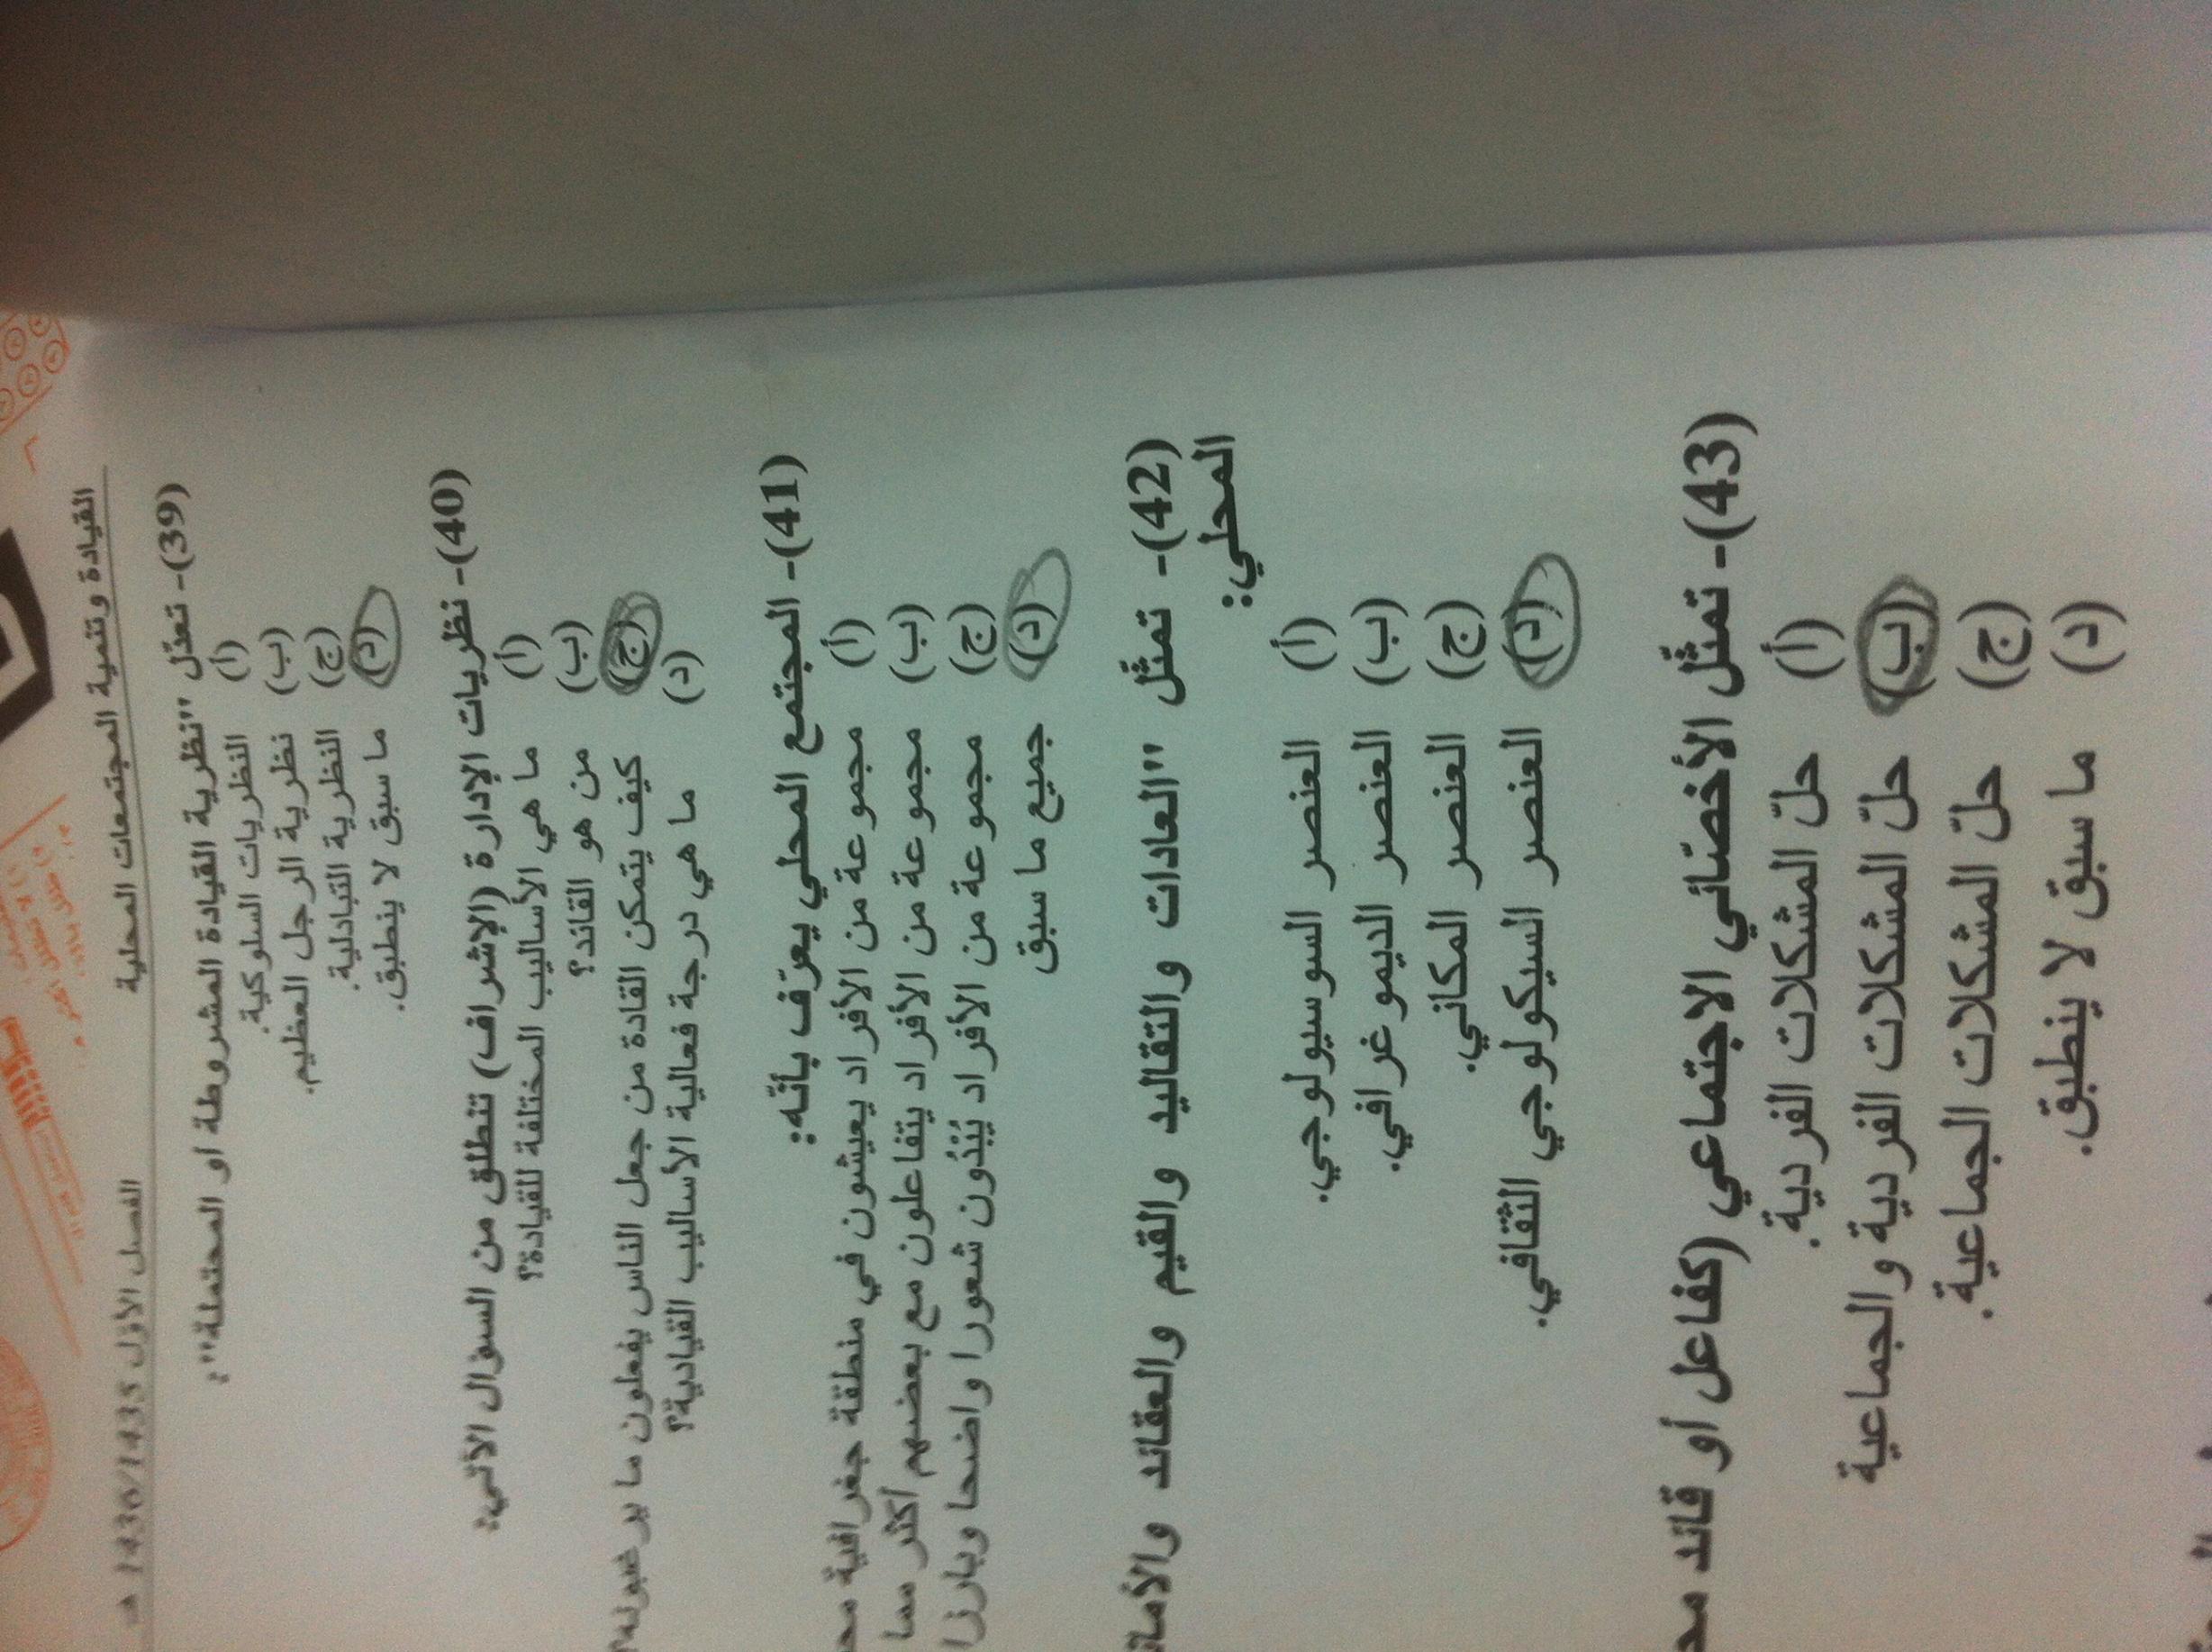 القيادة وتنمية المجتمعات المحلية الفصل الأول 1436/1435 هـ
(39)- تعدّل "نظرية القيادة المشروطة او المحتملة":
(أ) النظريات السلوكية.
(ب) نظرية الرجل العظيم.
(ج) النظرية التبادلية.
(د) ما سبق لا ينطبق.
(40)- نظريات الإدارة (الإشراف) تنطلق من السؤال الآتي:
(أ) ما هي الأساليب المختلفة للقيادة؟
(ب) من هو القائد؟
(ج) كيف يتمكن القادة من جعل الناس يفعلون ما يرغبونه؟
(د) ما هي درجة فعالية الأساليب القيادية؟
(41)- المجتمع المحلي يعرّف بأنّه:
(أ) مجموعة من الأفراد يعيشون في منطقة جغرافية
(ب) مجموعة من الأفراد يتفاعلون مع بعضهم أكثر مما
(ج) مجموعة من الأفراد يُبْدُون شعورا واضحا وبارزا
(د) جميع ما سبق
(42)- تمثّل "العادات والتقاليد والقيم والعقائد
المحلي:
(أ) العنصر السوسيولوجي.
(ب) العنصر الديموغرافي.
(ج) العنصر المكاني.
(د) العنصر السيكولوجي الثقافي.
(43)- تمثّل الأخصّائي الاجتماعي (كفاعل أو قائد
(أ) حلّ المشكلات الفردية.
(ب) حلّ المشكلات الفردية والجماعية
(ج) حلّ المشكلات الجماعية.
(د) ما سبق لا ينطبق.